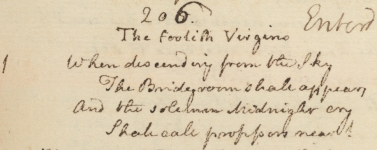 206.
Enterd
The Foolish Virgins
1 When descending from the Sky
The Bridegroom shall appear
And the solemn Midnight cry
Shall call professors near!